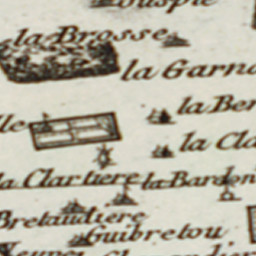 la Brosse
la Garn
la Ber
la Cla
la Clartiere la Bardon
Bretaudiere
Guibretou